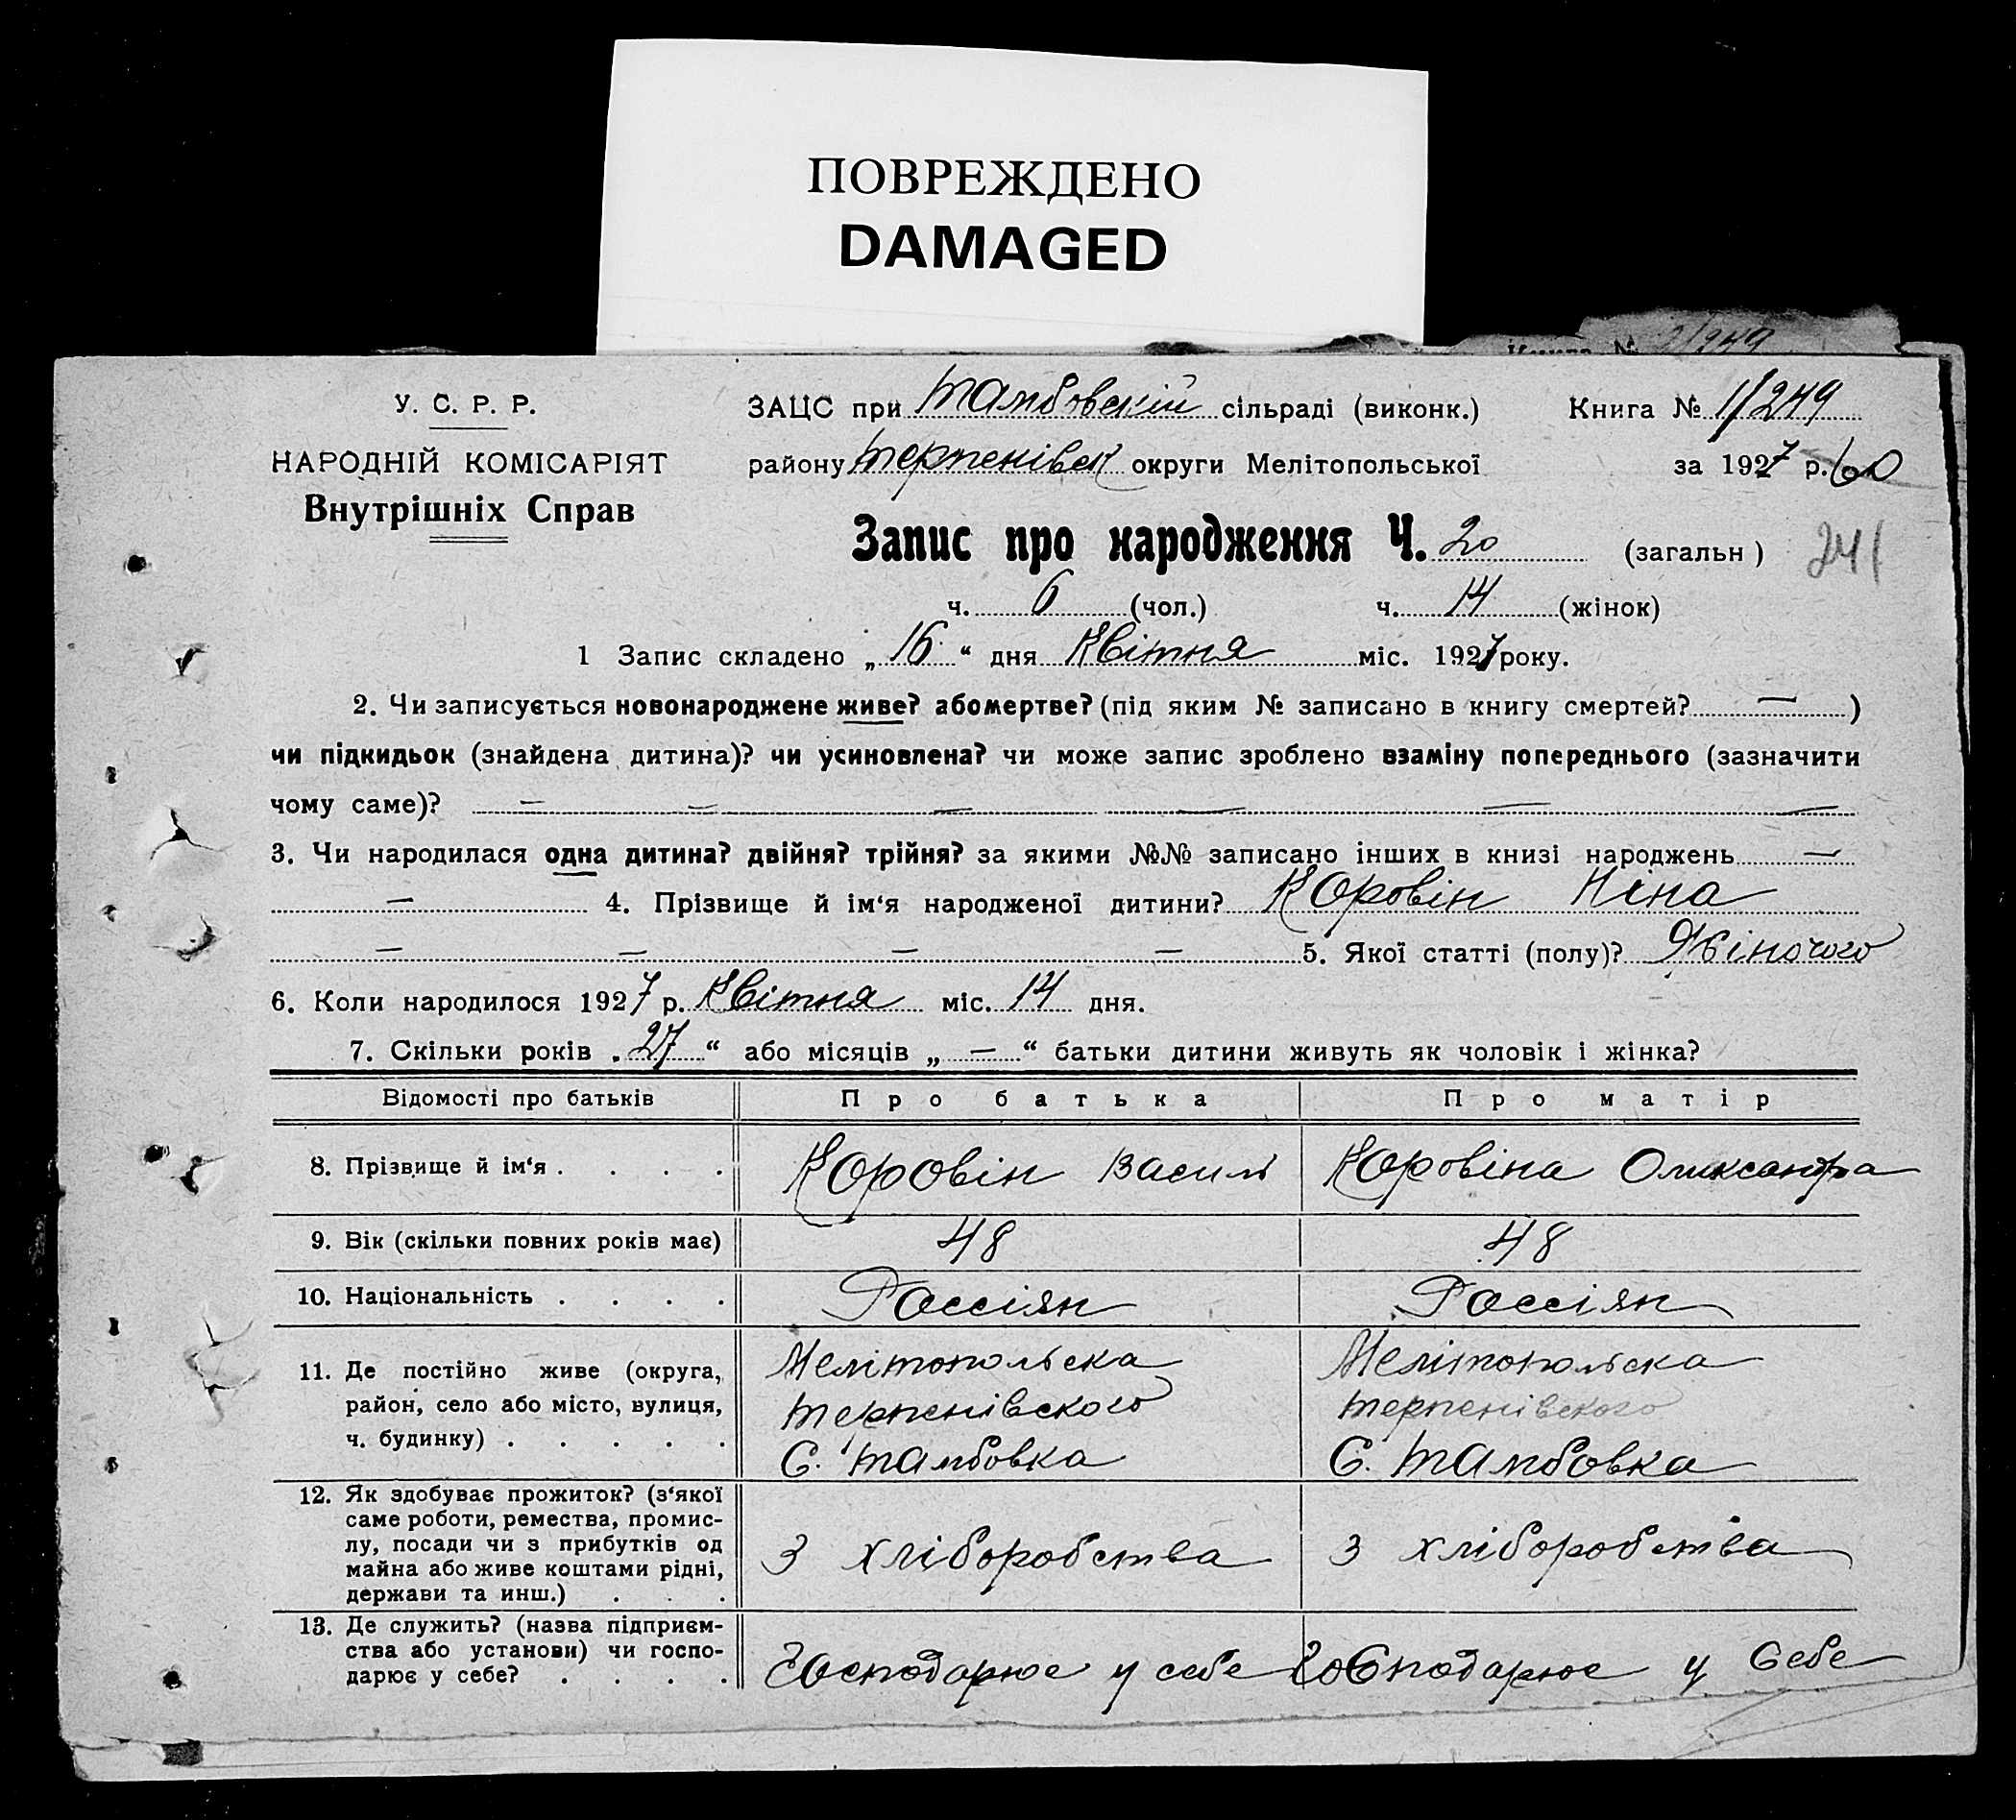 ПОВРЕЖДЕНО
DAMAGED
У. С. Р. Р.
НАРОДНІЙ КОМІСАРІЯТ
Внутрішніх Справ
ЗАЦС при Тамбовскій сільраді (виконк.) Книга № 1/249
району Терпенівск округи Мелітопольської за 1927 р. 60
Запис про народження Ч. 20 (загальн) 241
ч. 6 (чол.) ч. 14 (жінок)
1 Запис складено „16“ дня Квітня міс. 1927 року.
2. Чи записується новонароджене живе? абомертве? (під яким № записано в книгу смертей? — )
чи підкидьок (знайдена дитина)? чи усиновлена? чи може запис зроблено взаміну попереднього (зазначити
чому саме)? — — — — — —
3. Чи народилася одна дитина? двійня? трійня? за якими №№ записано інших в книзі народжень —
— 4. Прізвище й ім‘я народженої дитини? Коровін Ніна
— — — — 5. Якої статті (полу)? Жіночого
6. Коли народилося 1927 р. Квітня міс. 14 дня.
7. Скільки років „27“ або місяців „—“ батьки дитини живуть як чоловік і жінка?
Відомості про батьків Про батька Про матір
8. Прізвище й ім‘я . . . . Коровін Василь Коровіна Олександра
9. Вік (скільки повних років має) 48 48
10. Національність . . . . Россіян Россіян
11. Де постійно живе (округа, Мелітопольска Мелітопольска
район, село або місто, вулиця, Терпенівского Терпенівского
ч. будинку) . . . . . С. Тамбовка С. Тамбовка
12. Як здобуває прожиток? (з‘якої
саме роботи, ремества, промис-
лу, посади чи з прибутків од З хліборобства З хліборобства
майна або живе коштами рідні,
держави та инш.) . . .
13. Де служить? (назва підприєм-
ства або установи) чи госпо-
дарює у себе? . . . . Господарює у себе Господарює у себе